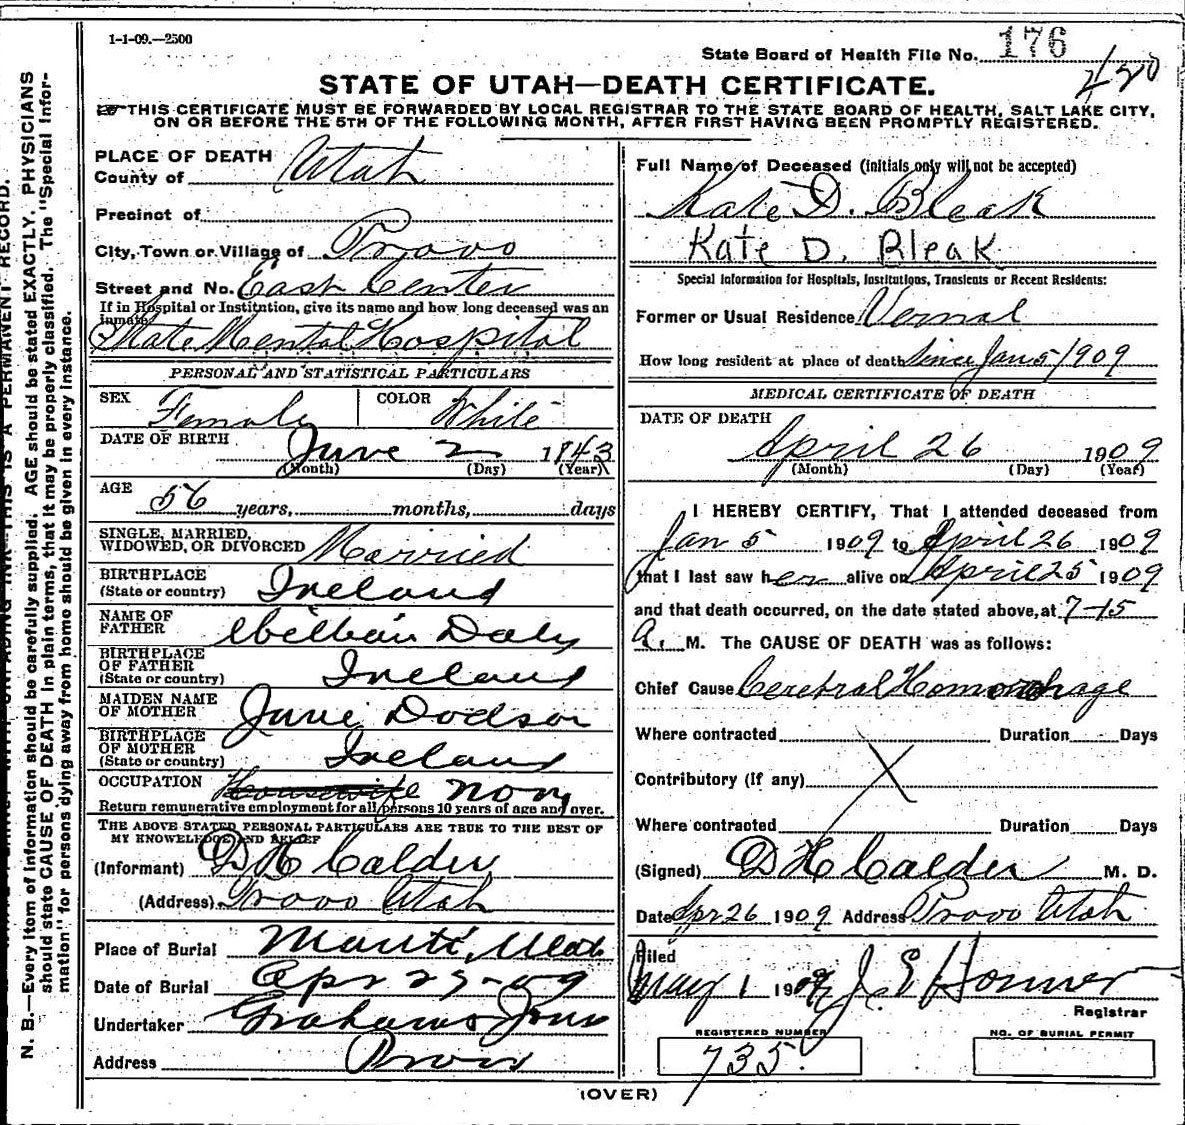 1-1-09.—2500
State Board of Health File No. 176
420
STATE OF UTAH—DEATH CERTIFICATE.
THIS CERTIFICATE MUST BE FORWARDED BY LOCAL REGISTRAR TO THE STATE BOARD OF HEALTH, SALT LAKE CITY,
ON OR BEFORE THE 5TH OF THE FOLLOWING MONTH, AFTER FIRST HAVING BEEN PROMPTLY REGISTERED.
PLACE OF DEATH
County of Utah
Precinct of
City, Town or Village of Provo
Street and No. East Center
If in Hospital or Institution, give its name and how long deceased was an
inmate.
State Mental Hospital
PERSONAL AND STATISTICAL PARTICULARS
SEX Female COLOR White
DATE OF BIRTH June 2 1843
(Month) (Day) (Year)
AGE 56 years, months, days
SINGLE, MARRIED,
WIDOWED, OR DIVORCED Married
BIRTHPLACE
(State or country) Ireland
NAME OF
FATHER William Daly
BIRTHPLACE
OF FATHER
(State or country) Ireland
MAIDEN NAME
OF MOTHER Jane Dodson
BIRTHPLACE
OF MOTHER
(State or country) Ireland
OCCUPATION Housewife Non
Return remunerative employment for all persons 10 years of age and over.
THE ABOVE STATED PERSONAL PARTICULARS ARE TRUE TO THE BEST OF
MY KNOWELEDGE AND BELIEF
(Informant) D H Calder
(Address) Provo Utah
Place of Burial Manti, Utah
Date of Burial Apr 27-09
Undertaker Graham
Address Provo
Full Name of Deceased (initials only will not be accepted)
Kate D. Bleak
Kate D. Bleak
Special Information for Hospitals, Institutions, Transients or Recent Residents:
Former or Usual Residence Vernal
How long resident at place of death Since Jan 5 1909
MEDICAL CERTIFICATE OF DEATH
DATE OF DEATH
April 26 1909
(Month) (Day) (Year)
I HEREBY CERTIFY, That I attended deceased from
Jan 5 1909 to April 26 1909
that I last saw her alive on April 25 1909
and that death occurred, on the date stated above, at 7-15
A. M. The CAUSE OF DEATH was as follows:
Chief Cause Cerebral Hemorrhage
Where contracted Duration Days
Contributory (if any)
Where contracted Duration Days
(Signed) D H Calder M. D.
Date Apr 26 1909 Address Provo Utah
Filed
May 1 1909 J. E. Homer
Registrar
REGISTERED NUMBER
735
NO. OF BURIAL PERMIT
(OVER)
N. B.—Every item of information should be carefully supplied. AGE should be stated EXACTLY. PHYSICIANS
should state CAUSE OF DEATH in plain terms, that it may be properly classified. The "Special Infor-
mation" for persons dying away from home should be given in every instance.